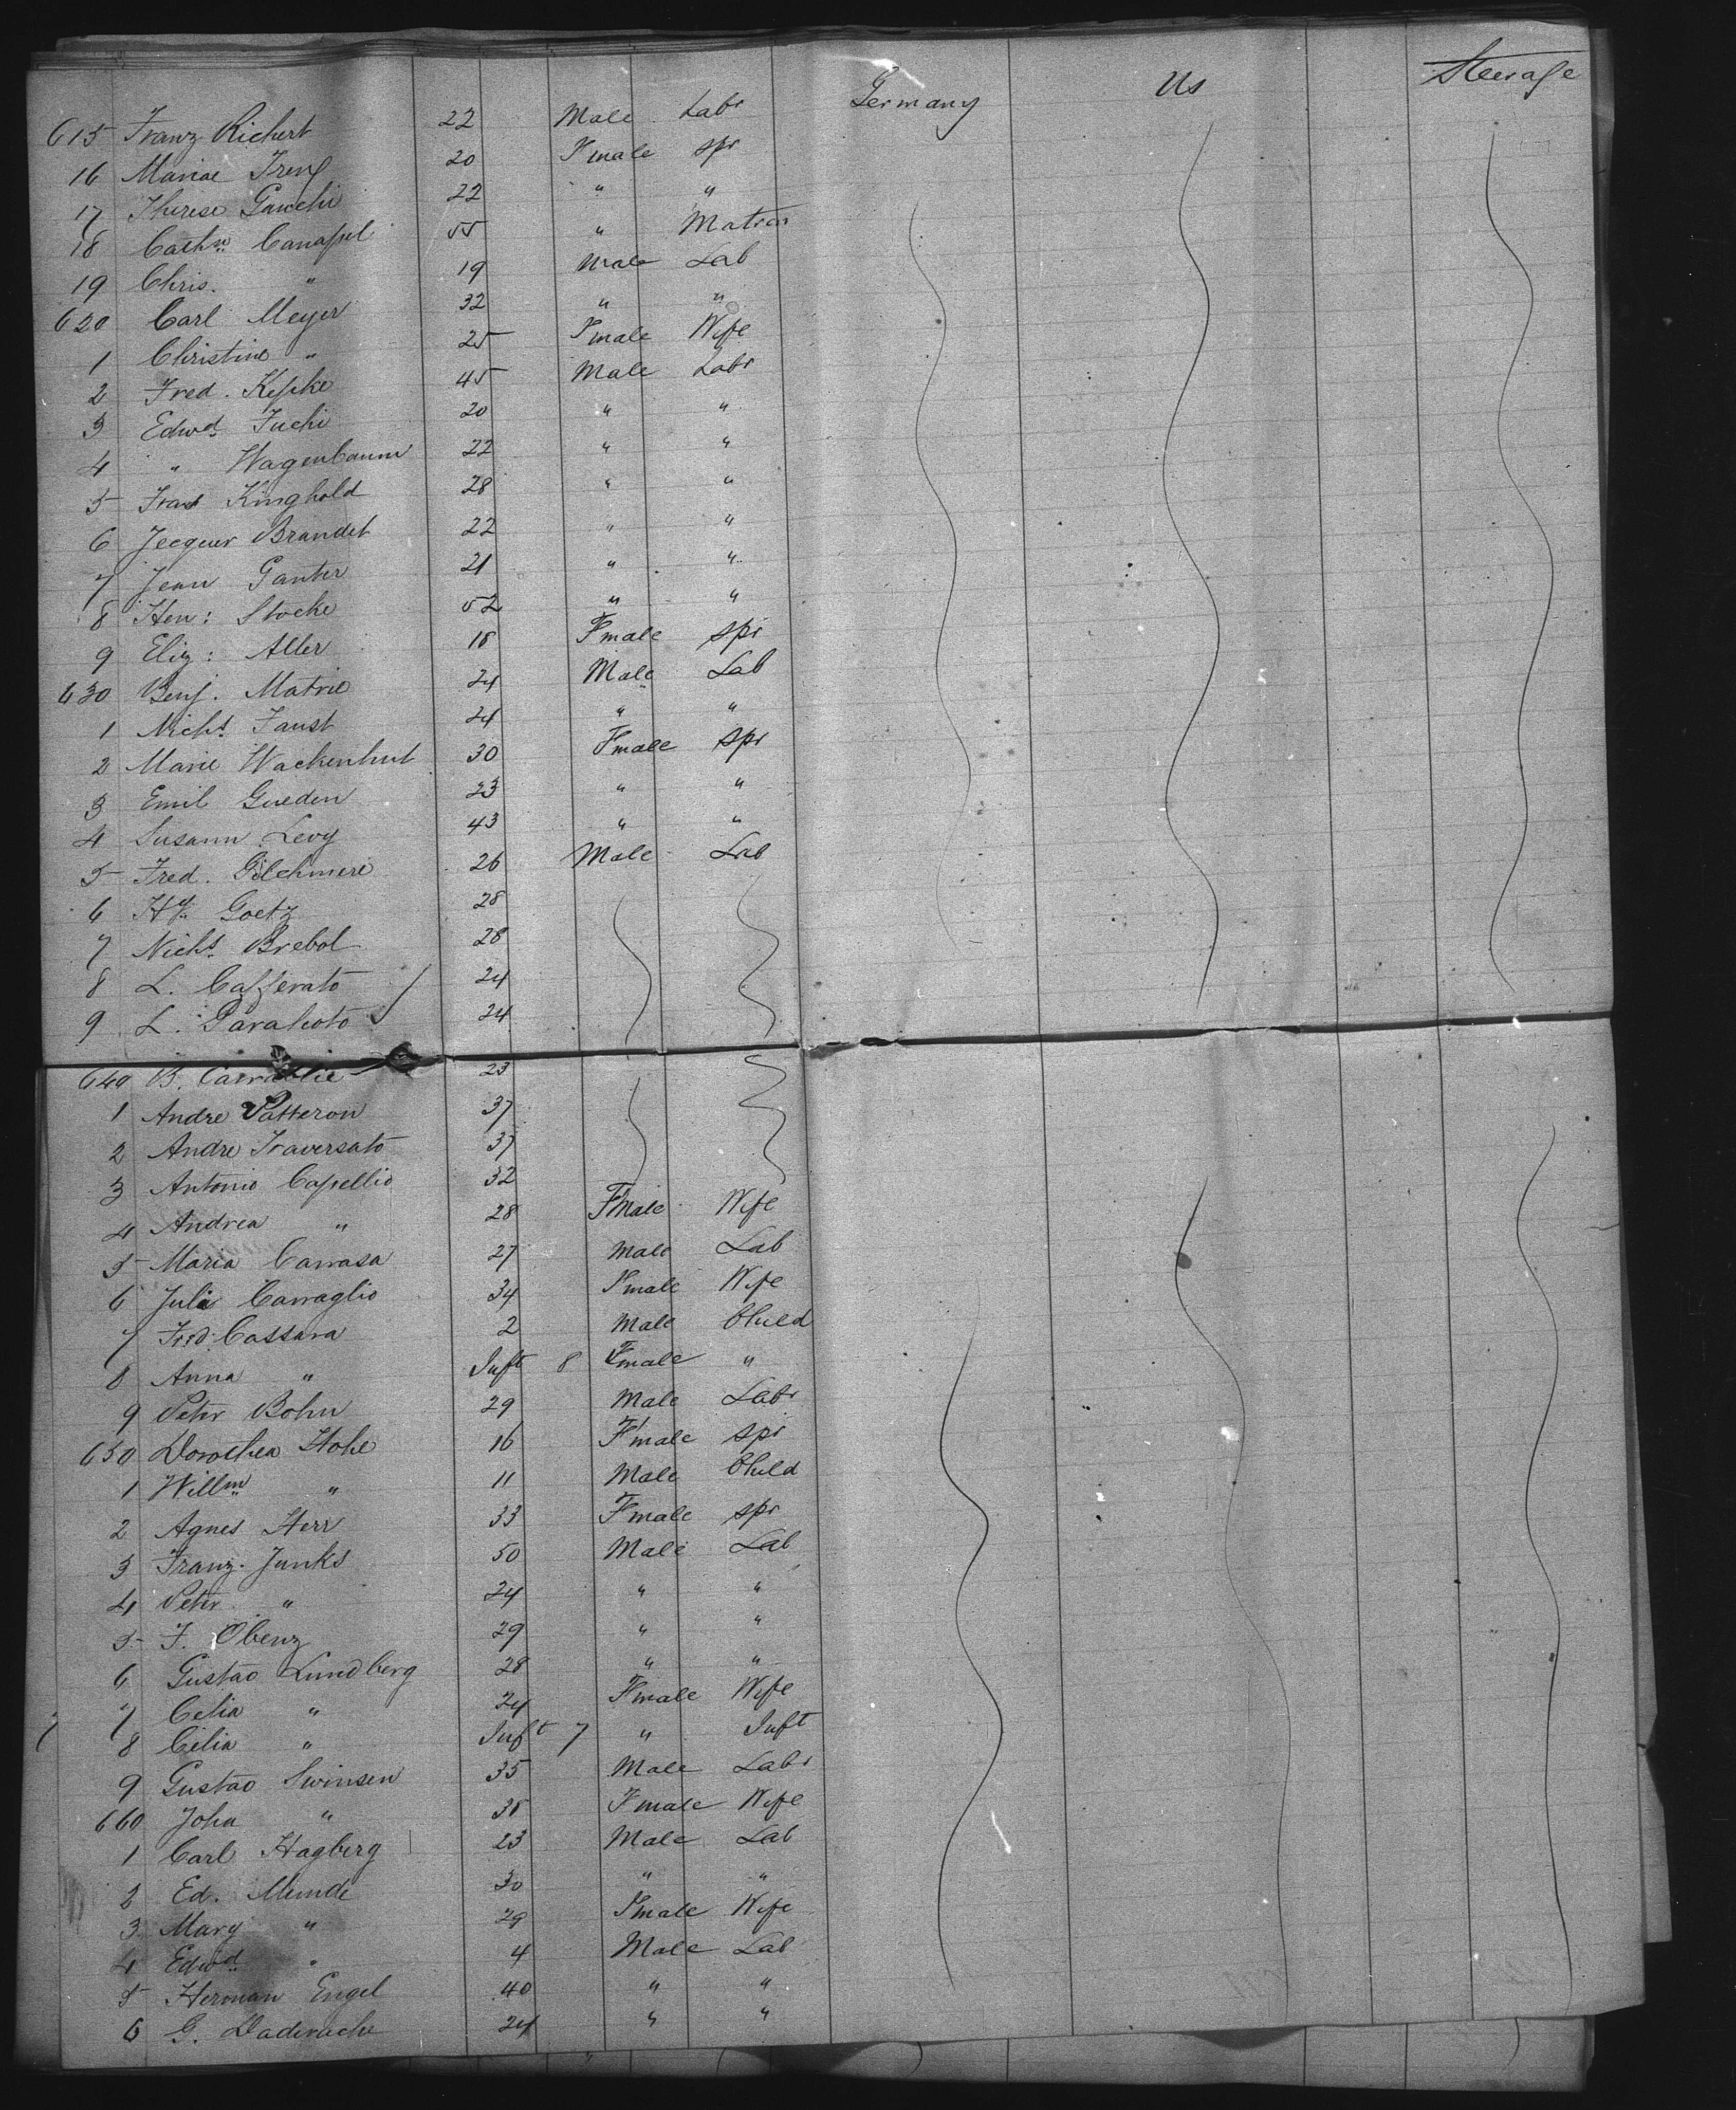 615 Franz Richert 22 Male Labr Germany Us Steerage
16 Mariae Treng 20 Fmale spr
17 Therese Gauchi 22 " "
18 Cathn Canaspel 55 " Matron
19 Chris. " 19 Male Lab
620 Carl Meyer 32 " "
1 Christine " 25 Fmale Wife
2 Fred. Kepke 45 Male Labr
3 Edwd Fuchi 20 " "
4 " Wagenbaum 22 " "
5 Franz Kinghold 28 " "
6 Jecquer Brandet 22 " "
7 Jean Ganter 21 " "
8 Hen: Stocke 52 " "
9 Eliz: Aller 18 Fmale spr
630 Benj. Matrie 24 Male Lab
1 Nichs Faust 24 " "
2 Marie Wackenhut 30 Fmale spr
3 Emil Gueden 23 " "
4 Susann Levy 43 " "
5 Fred. Gilchmere 26 Male Lab
6 Hy. Goetz 28
7 Nichs Brebol 28
8 L. Cafferato 24
9 L. Parahoto 24
640 B. 23
1 Andre Patteron 37
2 Andre Traversato 37
3 Antonio Capellio 32
4 Andrea " 28 Fmale Wife
5 Maria Carrasa 27 Male Lab
6 Juli Carraglio 34 Fmale Wife
7 Fred. Cassara 2 Male Child
8 Anna " Inft 8 Fmale "
9 Peter Bohn 29 Male Labr
650 Dorothea Hohe 16 Fmale spr
1 Willm " 11 Male Child
2 Agnes Herr 33 Fmale spr
3 Franz. Junks 50 Male Lab
4 Peter " 24 " "
5 J. Obenz 29 " "
6 Gustao Lundberg 28 " "
7 Celia " 24 Fmale Wife
8 Celia " Inft 7 " Inft
9 Gustao Swinsen 35 Male Labr
660 Joha " 38 Fmale Wife
1 Carl Hagberg 23 Male Lab
2 Ed. Munde 30 " "
3 Mary " 29 Fmale Wife
4 Edwd " 4 Male Lab
5 Herman Engel 40 " "
6 G. Daderache 24 " "